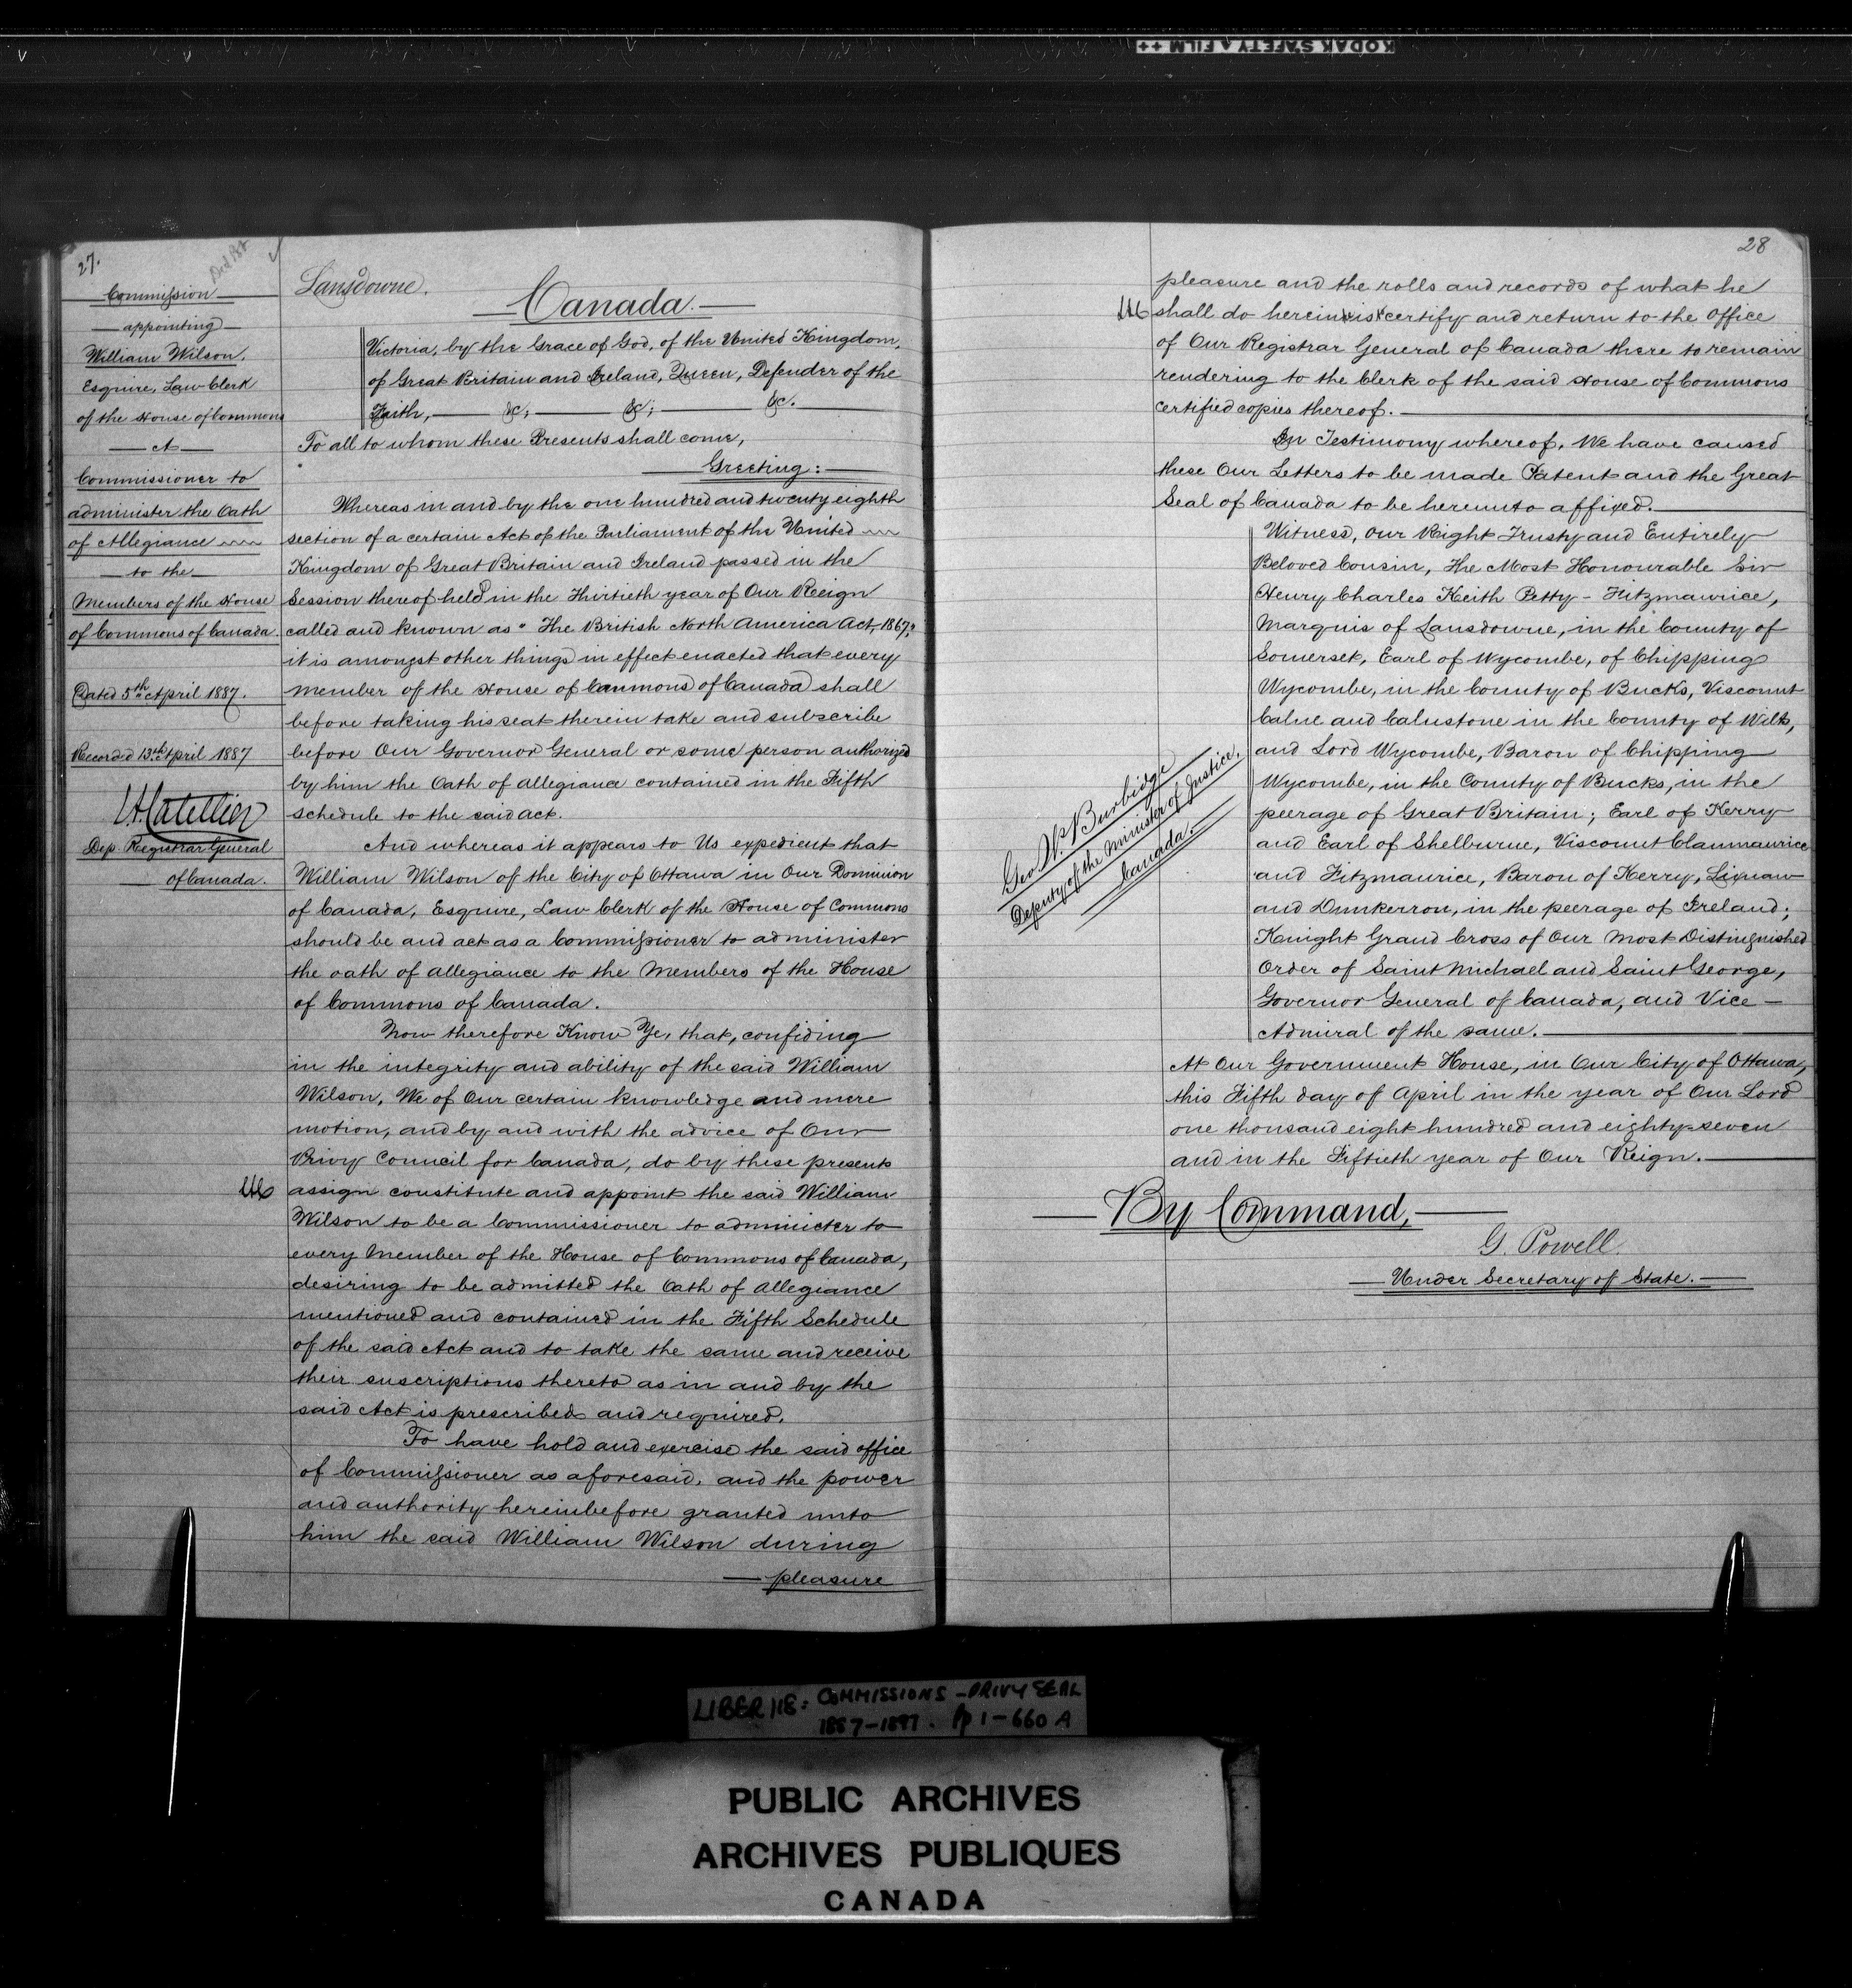 KODAK SAFETY A FILM ++
27.
Commission
appointing
William Wilson,
Esquire, Law Clerk
of the House of Commons
A
Commissioner to
administer the Oath
of Allegiance
to the
Members of the House
of Commons of Canada.
Dated 5th April 1887.
Recorded 13th April 1887
Catellier
Dep. Registrar General
of Canada.
Lansdowne.
Canada.
Victoria, by the Grace of God, of the United Kingdom,
of Great Britain and Ireland, Queen, Defender of the
Faith, &c; &c; &c.
To all to whom these Presents shall come,
Greeting:
Whereas in and by the one hundred and twenty eighth
section of a certain Act of the Parliament of the United
Kingdom of Great Britain and Ireland passed in the
Session thereof held in the Thirtieth year of Our Reign
called and known as "The British North America Act, 1867,"
it is amongst other things in effect enacted that every
member of the House of Commons of Canada shall
before taking his seat therein take and subscribe
before Our Governor General or some person authorized
by him the Oath of Allegiance contained in the Fifth
schedule to the said act.
And whereas it appears to Us expedient that
William Wilson of the City of Ottawa in Our Dominion
of Canada, Esquire, Law Clerk of the House of Commons
should be and act as a Commissioner to administer
the oath of allegiance to the Members of the House
of Commons of Canada.
Now therefore Know Ye, that, confiding
in the integrity and ability of the said William
Wilson, We of Our certain knowledge and mere
motion, and by and with the advice of Our
Privy Council for Canada, do by these presents
assign constitute and appoint the said William
Wilson to be a Commissioner to administer to
every Member of the House of Commons of Canada,
desiring to be admitted the Oath of Allegiance
mentioned and contained in the Fifth Schedule
of the said Act and to take the same and receive
their suscriptions thereto as in and by the
said Act is prescribed and required.
To have hold and exercise the said office
of Commissioner as aforesaid, and the power
and authority hereinbefore granted unto
him the said William Wilson during
pleasure
28
pleasure and the rolls and records of what he
shall do herein is certify and return to the office
of Our Registrar General of Canada there to remain
rendering to the Clerk of the said House of Commons
certified copies thereof.
In Testimony whereof, We have caused
these Our Letters to be made Patent and the Great
Seal of Canada to be hereunto affixed.
Witness, Our Right Trusty and Entirely
Beloved Cousin, The Most Honourable Sir
Henry Charles Keith Petty-Fitzmaurice,
Marquis of Lansdowne, in the County of
Somerset, Earl of Wycombe, of Chipping
Wycombe, in the County of Bucks, Viscount
Calne and Calnstone in the County of Wilts,
and Lord Wycombe, Baron of Chipping
Wycombe, in the County of Bucks, in the
peerage of Great Britain; Earl of Kerry
and Earl of Shelburne, Viscount Clanmaurice
and Fitzmaurice, Baron of Kerry, Lixnaw
and Dunkerron, in the peerage of Ireland;
Knight Grand Cross of Our Most Distinguished
Order of Saint Michael and Saint George,
Governor General of Canada, and Vice-
Admiral of the same.
At Our Government House, in Our City of Ottawa,
this Fifth day of April in the year of Our Lord
one thousand eight hundred and eighty=seven
and in the Fiftieth year of Our Reign.
Geo. W. Burbidge
Deputy of the Minister of Justice.
Canada.
By Command,
G. Powell.
Under Secretary of State.
LIBER 118: COMMISSIONS - PRIVY SEAL
1887-1897. pp 1-660 A
PUBLIC ARCHIVES
ARCHIVES PUBLIQUES
CANADA